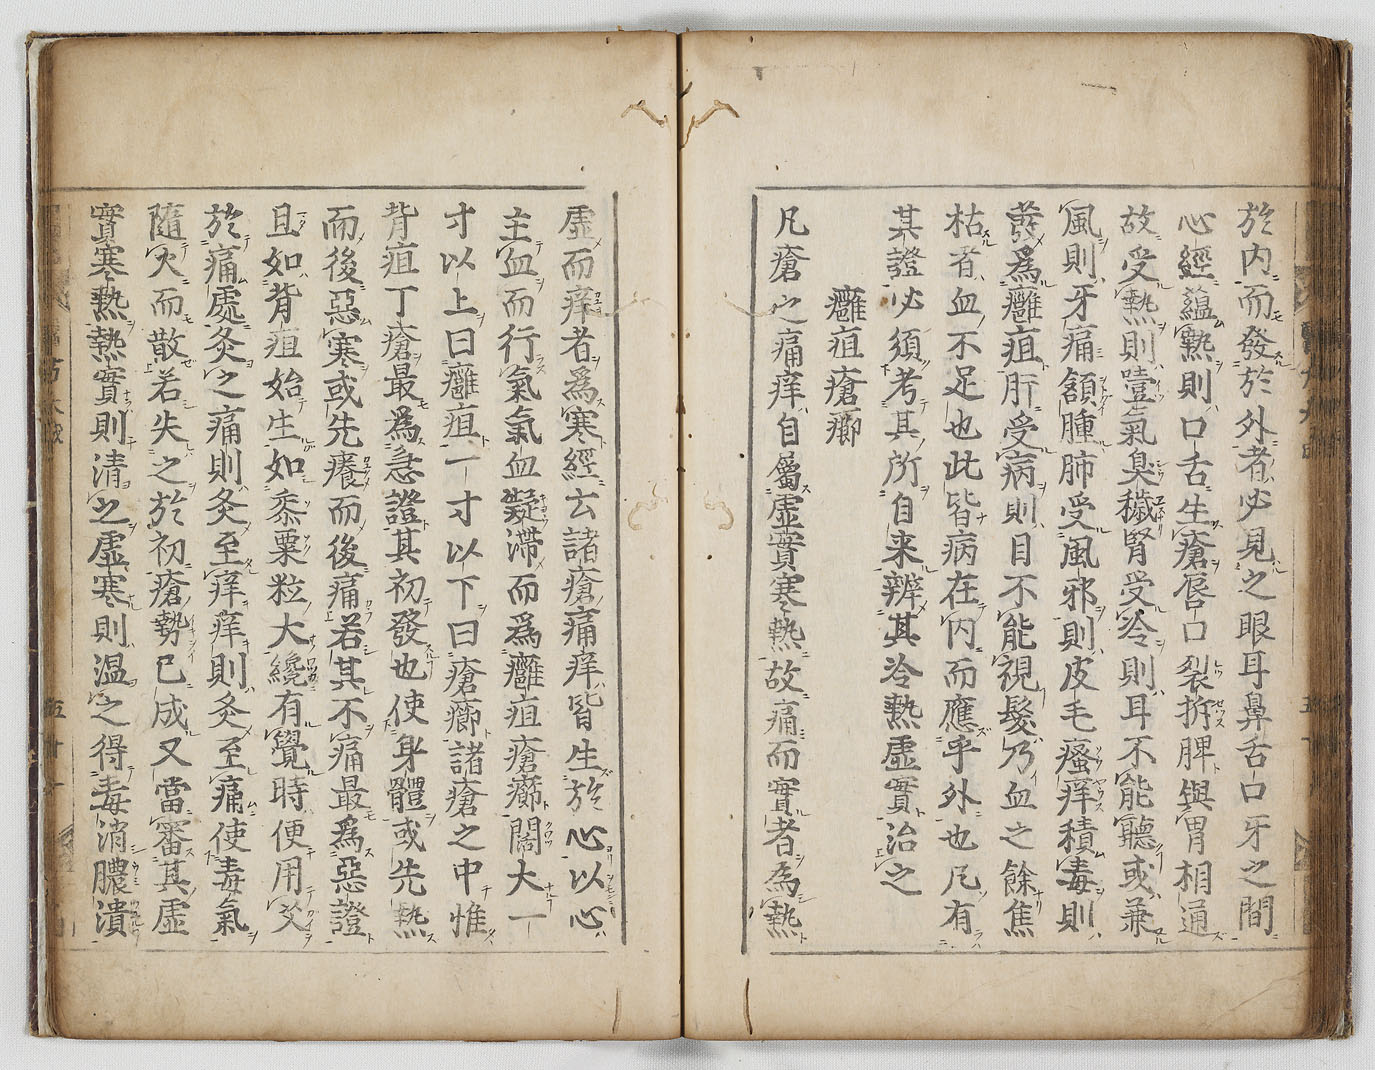 於内而發於外者必見之眼耳鼻舌口牙之間
心經蘊熱則口舌生瘡唇口裂拆脾與胃相通
故受熱則噎氣臭穢腎受冷則耳不能聽或兼
風則牙痛額腫肺受風邪則皮毛瘙痒積毒則
發爲癰疽肝受病則目不能視髮乃血之餘焦
枯者血不足也此皆病在内而應乎外也凡有
其證必須考其所自来辨其冷熱虚實治之
癰疽瘡癤
凡瘡之痛痒自屬虚實寒熱故痛而實者為熱
虚而痒者爲寒經云諸瘡痛痒皆生於心以心
主血而行氣氣血凝滞而爲癰疽瘡癤闊大一
寸以上曰癰疽一寸以下曰瘡癤諸瘡之中惟
背疽丁瘡最爲急證其初發也使身體或先熱
而後惡寒或先癢而後痛若其不痛最爲惡證
且如背疽始生如黍粟粒大纔有覺時便用艾
於痛處灸之痛則灸至痒痒則灸至痛使毒氣
隨火而散若失之於初瘡勢已成又當審其虚
實寒熱熱實則清之虚寒則温之得毒消膿潰